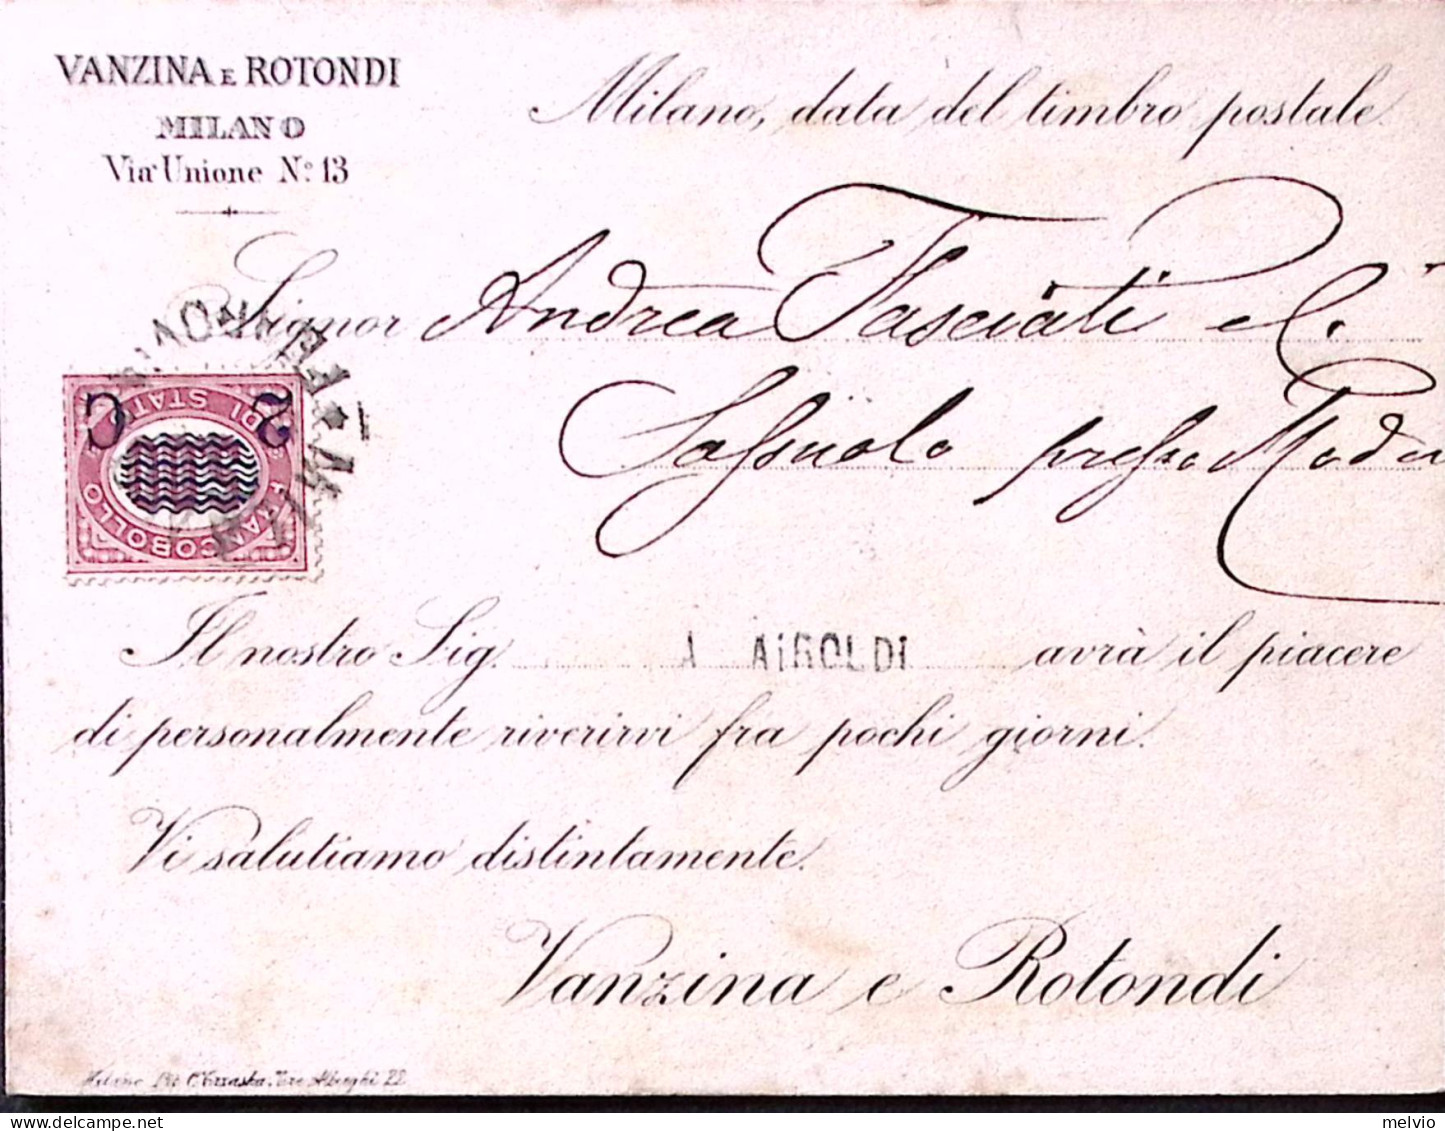 VANZINA E ROTONDI
MILANO
Via Unione Nº 13
Milano, data del timbro postale.
Signor Andrea Fasciati & C.
Sassuolo presso Moden
2 C
FRANCOBOLLO DI STATO
MILANO
FERROVIA
Il nostro Sig. A AIROLDI avrà il piacere
di personalmente riverirvi fra pochi giorni.
Vi salutiamo distintamente.
Vanzina e Rotondi
Milano
melvio